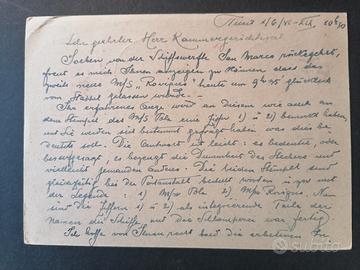 Sehr geehrter Herr Kammergerichtsrat
Soeben von der Schiffswerfte San Marco rückgekehrt,
freut es mich Ihnen anzeigen zu können dass das
zweite neue M/S "Rovigno" heute um 9 45 glücklich
vom Stapel gelassen wurde. -
Ihr erfahrenes Auge wird an diesem wie auch an
dem Stempel des M/S Pola eine 1) u 2) bemerkt haben,
und Sie werden sich bestimmt gefragt haben was dies be-
deute solle. Die Antwort ist leicht: es bedeutet, oder
besser gesagt, es bezeugt die Dummheit des Stechers und
vielleicht jemanden anderes. Die beiden Stempel sind
gleichzeitig bei der Postanstalt bestellt worden mit
der Legende 1) M/S Pola 2) M/S Rovigno. Nun
sind die Ziffern 1) u 2) als integrierende Teile der
Namen der Schiffe und das Schlamperei war fertig.
Ich hoffe von Ihnen recht bald die erbetenen
Subito